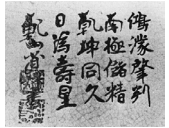 鴻濛肇判
南極儲精
乾坤同久
日為壽星